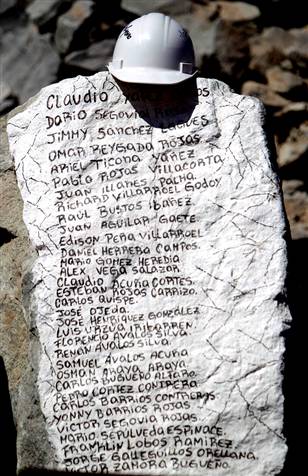 CLAUDIO YAÑEZ LAGOS
DARIO SEGOVIA ROJAS
JIMMY SANCHEZ LAGUES
OMAR REYGADA ROJAS
ARIEL TICONA YAÑEZ
PABLO ROJAS VILLACORTA
JUAN ILLANES PACHA
RICHARD VILLARROEL GODOY
RAÚL BUSTOS IBAÑEZ
JUAN AGUILAR GAETE.
EDISON PEÑA VILLARROEL
DANIEL HERRERA CAMPOS.
MARIO GOMEZ HEREDIA
ALEX VEGA SALAZAR
CLAUDIO ACUÑA CORTES.
ESTEBAN ROJAS CARRIZO.
CARLOS QUISPE.
JOSÉ OJEDA.
JOSÉ HENRIQUEZ GONZÁLEZ
LUIS URZUA IRIBARREN.
FLORENCIO AVALOS SILVA
RENAN AVALOS SILVA.
SAMUEL AVALOS ACUÑA
OSMAN ARAYA ARAYA
CARLOS BUGUEÑO ALFARO
PEDRO CORTEZ CONTRERA
CARLOS BARRIOS CONTRERAS
YONNY BARRIOS ROJAS
VICTOR SEGOVIA ROJAS
MARIO SEPÚLVEDA ESPINACE.
FRANKLIN LOBOS RAMIREZ.
JORGE GALLEGUILLOS ORELLANA.
VICTOR ZAMORA BUGUEÑO.